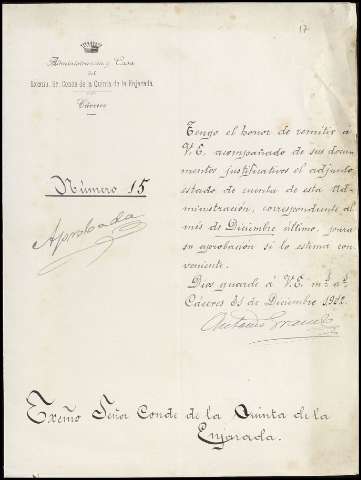 17
Administración y Casa
del
Excmo. Sr. Conde de la Quinta de la Enjarada.
Cáceres
Número 15
Aprobada
Tengo el honor de remitir á
V. E. acompañado de sus docu-
mentos justificativos el adjunto
estado de cuenta de esta Ad-
ministración, correspondiente al
mes de Diciembre último, para
su aprobación si lo estima con-
veniente.
Dios guarde á V. E. m.s a.s
Cáceres 31 de Diciembre 1902.
Antonio
Excmo Señor Conde de la Quinta de la
Enjarada.